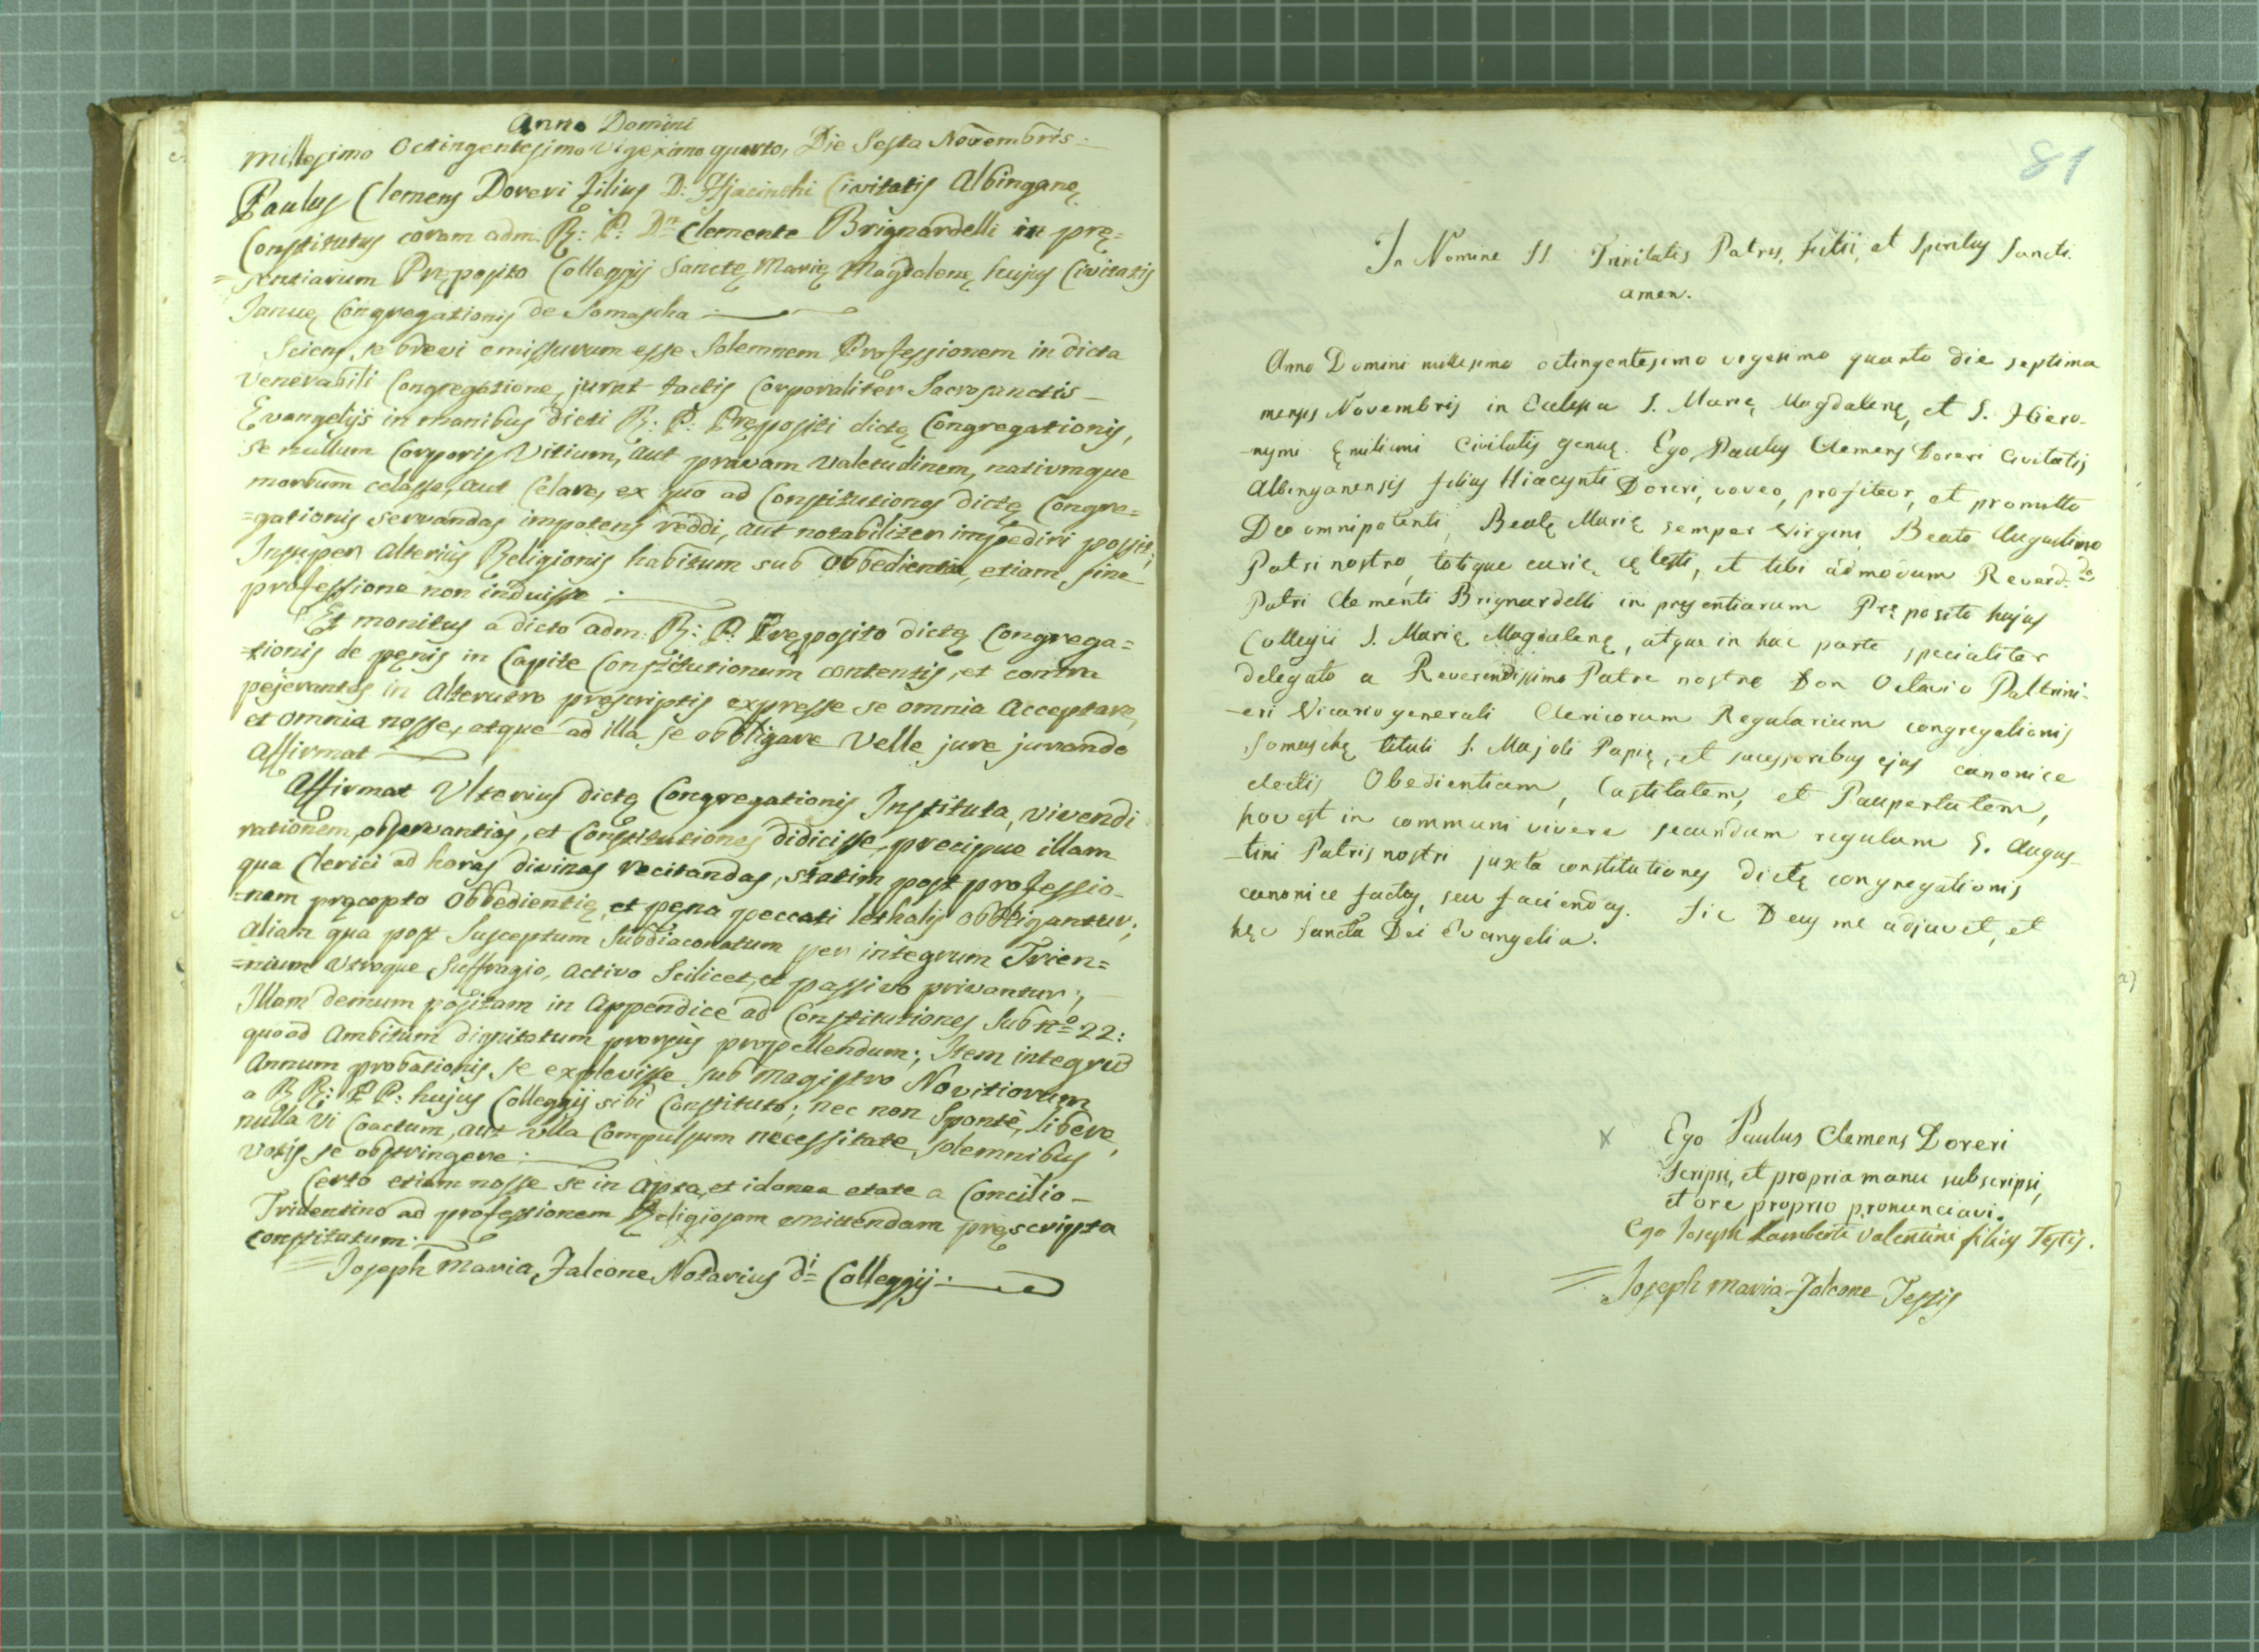 Anno Domini
Millesimo Octingentesimo Vigesimo quarto, Die Sesta Novembris:
Paulus Clemens Doreri filius D: Hjacinthi Civitatis Albinganę
Constitutus coram adm. R: P: Dn Clemente Brignardelli in prę=
=sentiarum Pręposito Colleggij Sanctę Marię Magdalenę hujus Civitatis
Januę Congregationis de Somascha
Sciens se brevi emissurum esse Solemnem Professionem in dicta
Venerabili Congregatione, jurat tactis Corporaliter Sacrosanctis
Evangelijs in manibus dicti R: P: Prępositi dictę Congregationis,
se nullum Corporis Vitium, aut pravam valetudinem, nativmque
morbum celasse, aut Celare, ex quo ad Constitutiones dictę Congre=
=gationis servandas impotens reddi, aut notabiliter impediri possit;
Insuper Alterius Religionis habitum sub Obbedientia, etiam sine
professione non induisse
Et monitus a dicto adm: R: P: Pręposito dictę Congrega=
=tionis de pęnis in Capite Constitutionum contentis, et contra
pejerantes in Alterutro prescriptis expresse se omnia Acceptare,
et omnia nosse, atque ad illa se obbligare Velle jure jurando
Affirmat
Affirmat Ulterius dictę Congregationis Instituta, vivendi
rationem, observantias, et Constitutiones didicisse, precipue illam
qua Clerici ad horas divinas recitandas, statim post professio-
=nem pręcepto Obbedientię, et pęna peccati lethalis obbligantur;
aliam qua post Susceptum Subdiaconatum per integrum Trien=
=nium Utroque Suffragio, Activo Scilicet, et passivo privantur;
Illam demum positam in Appendice ad Constitutiones Sub no 22:
quoad Ambitum dignitatum prorsus propellendum; Item integrũ
Annum probationis se explevisse sub Magistro Novitiorum
a R R: P P: hujus Colleggij sibi Constituto; nec non Sponte, Libere,
nulla Vi Coactum, aut ulla Compulsum necessitate, solemnibus
votis se obstringere
Certo etiam nosse se in Apta, et idonea etate a Concilio
Tridentino ad professionem Religiosam emittendam pręscripta
constitutum.
Joseph Maria Falcone Notarius di Colleggij
81
In Nomine SS. Trinitatis Patris, Filii, et Spiritus Sancti.
amen.
Anno Domini millesimo octingentesimo vigesimo quarto die septima
mensis Novembris in Ecclesia S. Marię Magdalenę, et S. Hiero-
-nymi Ęmiliani Civitatis genuę. Ego Paulus Clemens Doreri Civitatis
Albinganensis filius Hiacynti Doreri, voveo, profiteor, et promitto
Deo omnipotenti, Beatę Marię semper Virgini, Beato Augustino
Patri nostro, totique curię cęlesti, et tibi admodum Reverd.do
Patri Clementi Brignardelli in presentiarum Pręposito hujus
Collegii S. Marię Magdalenę, atque in hac parte specialiter
delegato a Reverendissimo Patre nostro Don Octavio Paltrini-
-eri Vicario generali Clericorum Regularium congregationis
Somaschę tituli S. Majoli Papię, et sucessoribus ejus canonice
electis Obedientiam, Castitatem, et Paupertatem,
hoc est in communi vivere secundum regulam S. Augus-
-tini Patris nostri juxta constitutiones dictę congregationis
canonice factas, seu faciendas. Sic Deus me adjuvet, et
hęc Sancta Dei Evangelia.
X Ego Paulus Clemens Doreri
Scripsi, et propria manu subscripsi,
et ore proprio pronunciavi.
Ego Joseph Lamberti Valentini filius Testis.
Joseph Maria Falcone Testis